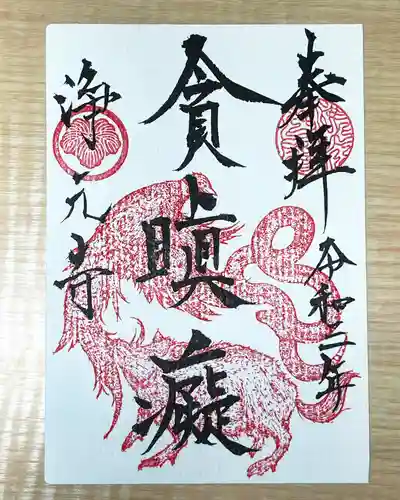 奉拝
令和二年
貪瞋癡
浄元寺